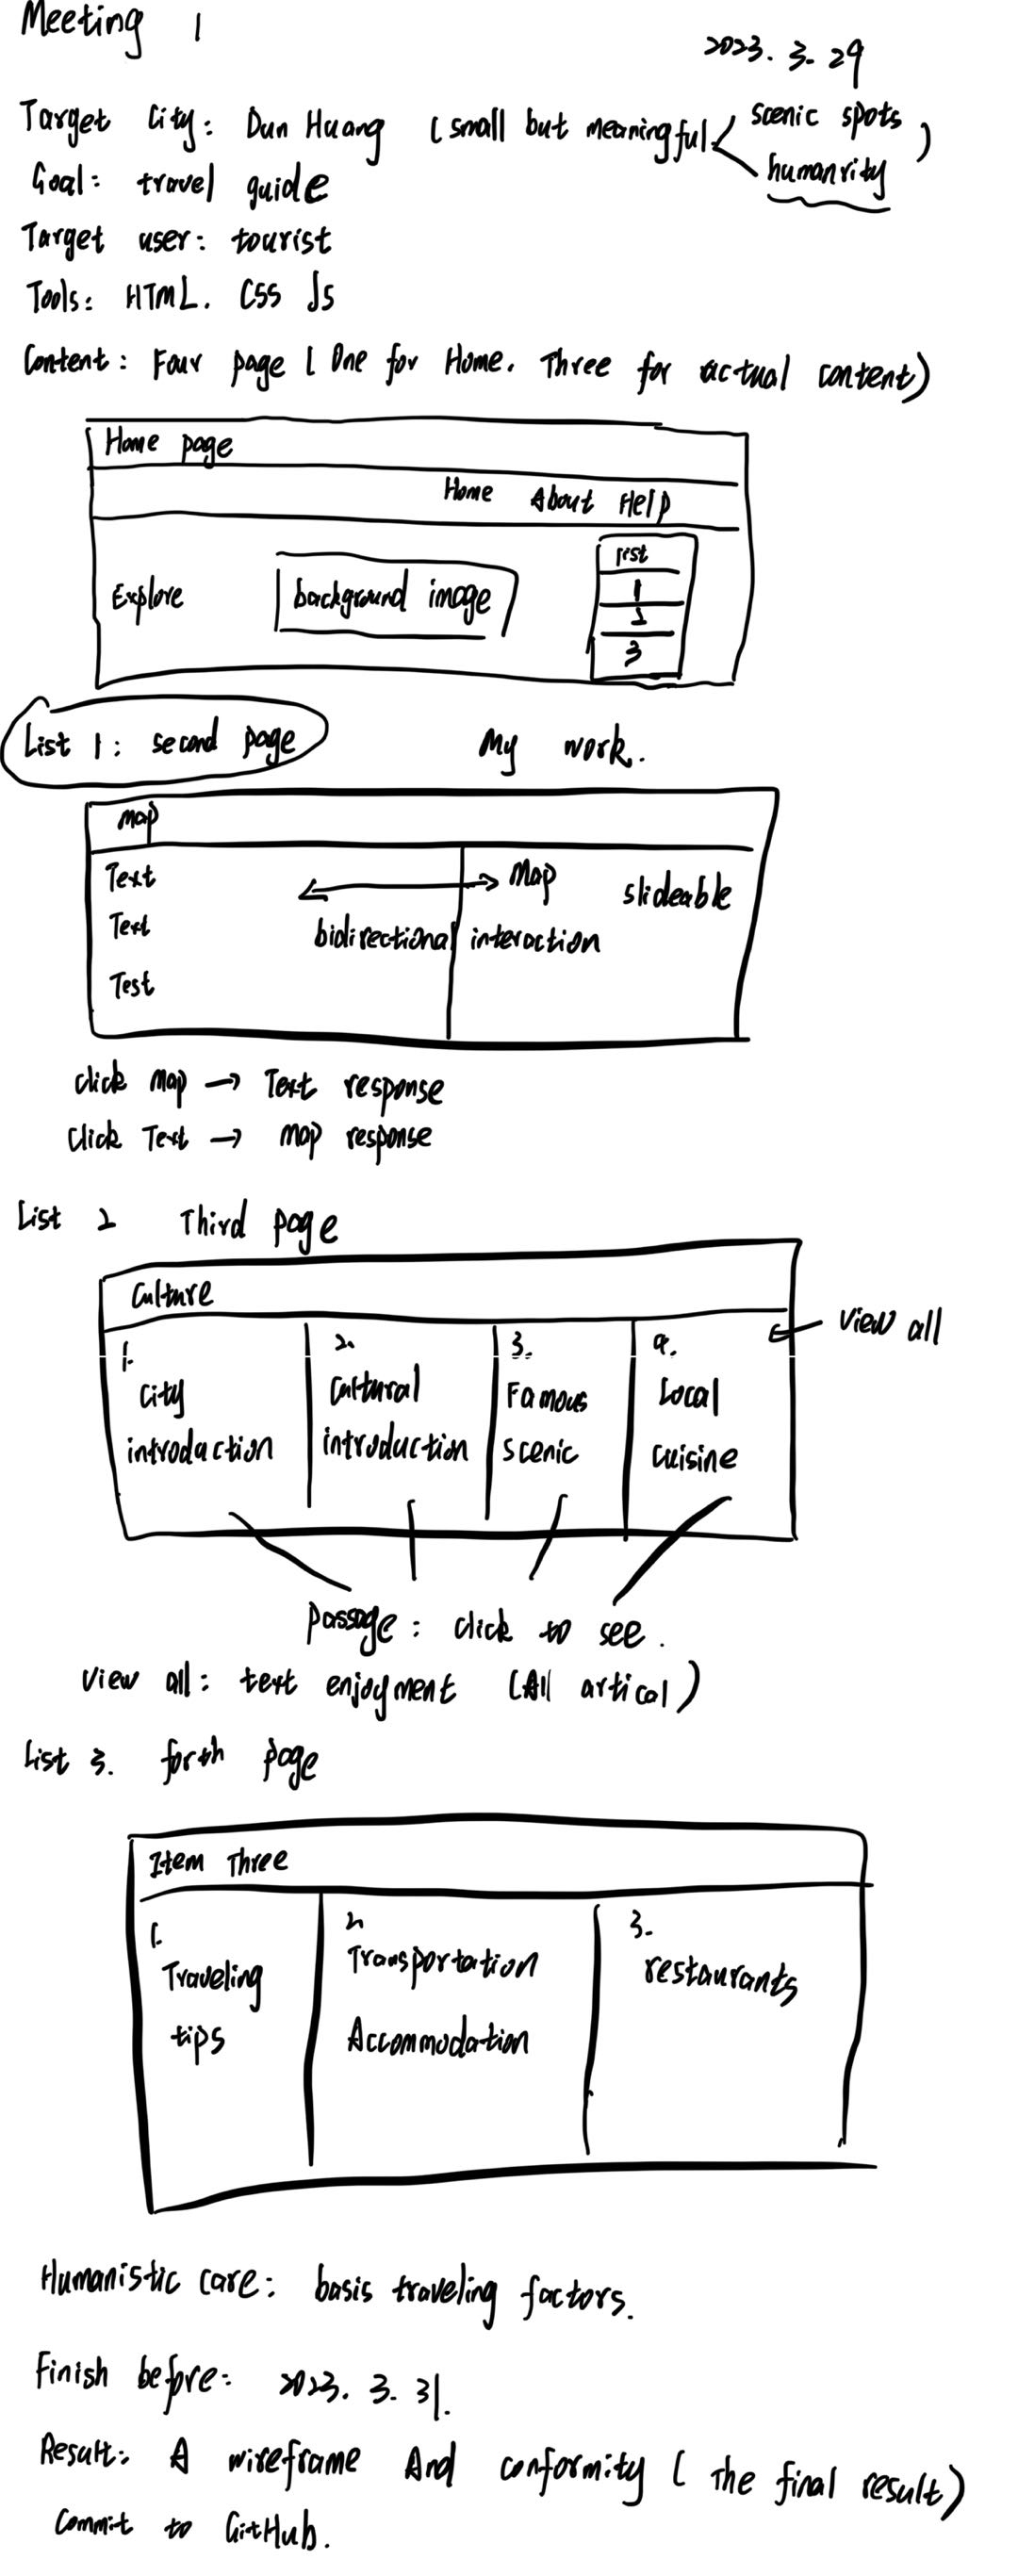 Meeting 1
2023. 3. 29
Target City: Dun Huang (small but meaningful
scenic spots
humanrity)
Goal: travel guide
Target user: tourist
Tools: HTML. CSS JS
Content: Four page (One for Home. Three for actual content)
Home page
Home About Help
Explore
background image
list
1
2
3
List 1: second page
My work.
Map
Text
Map
slideable
Text
bidirectional interaction
Test
click Map → Text response
Click Text → Map response
List 2 Third page
Culture
View all
1. City introduction
2. Cultural introduction
3. Famous scenic
4. Local cuisine
Passage: click to see.
View all: text enjoyment (All artical)
List 3. forth page
Item Three
1. Traveling tips
2. Transportation Accommodation
3. restaurants
Humanistic care: basis traveling factors.
Finish before: 2023. 3. 31.
Result: A wireframe And conformity (The final result)
Commit to GitHub.